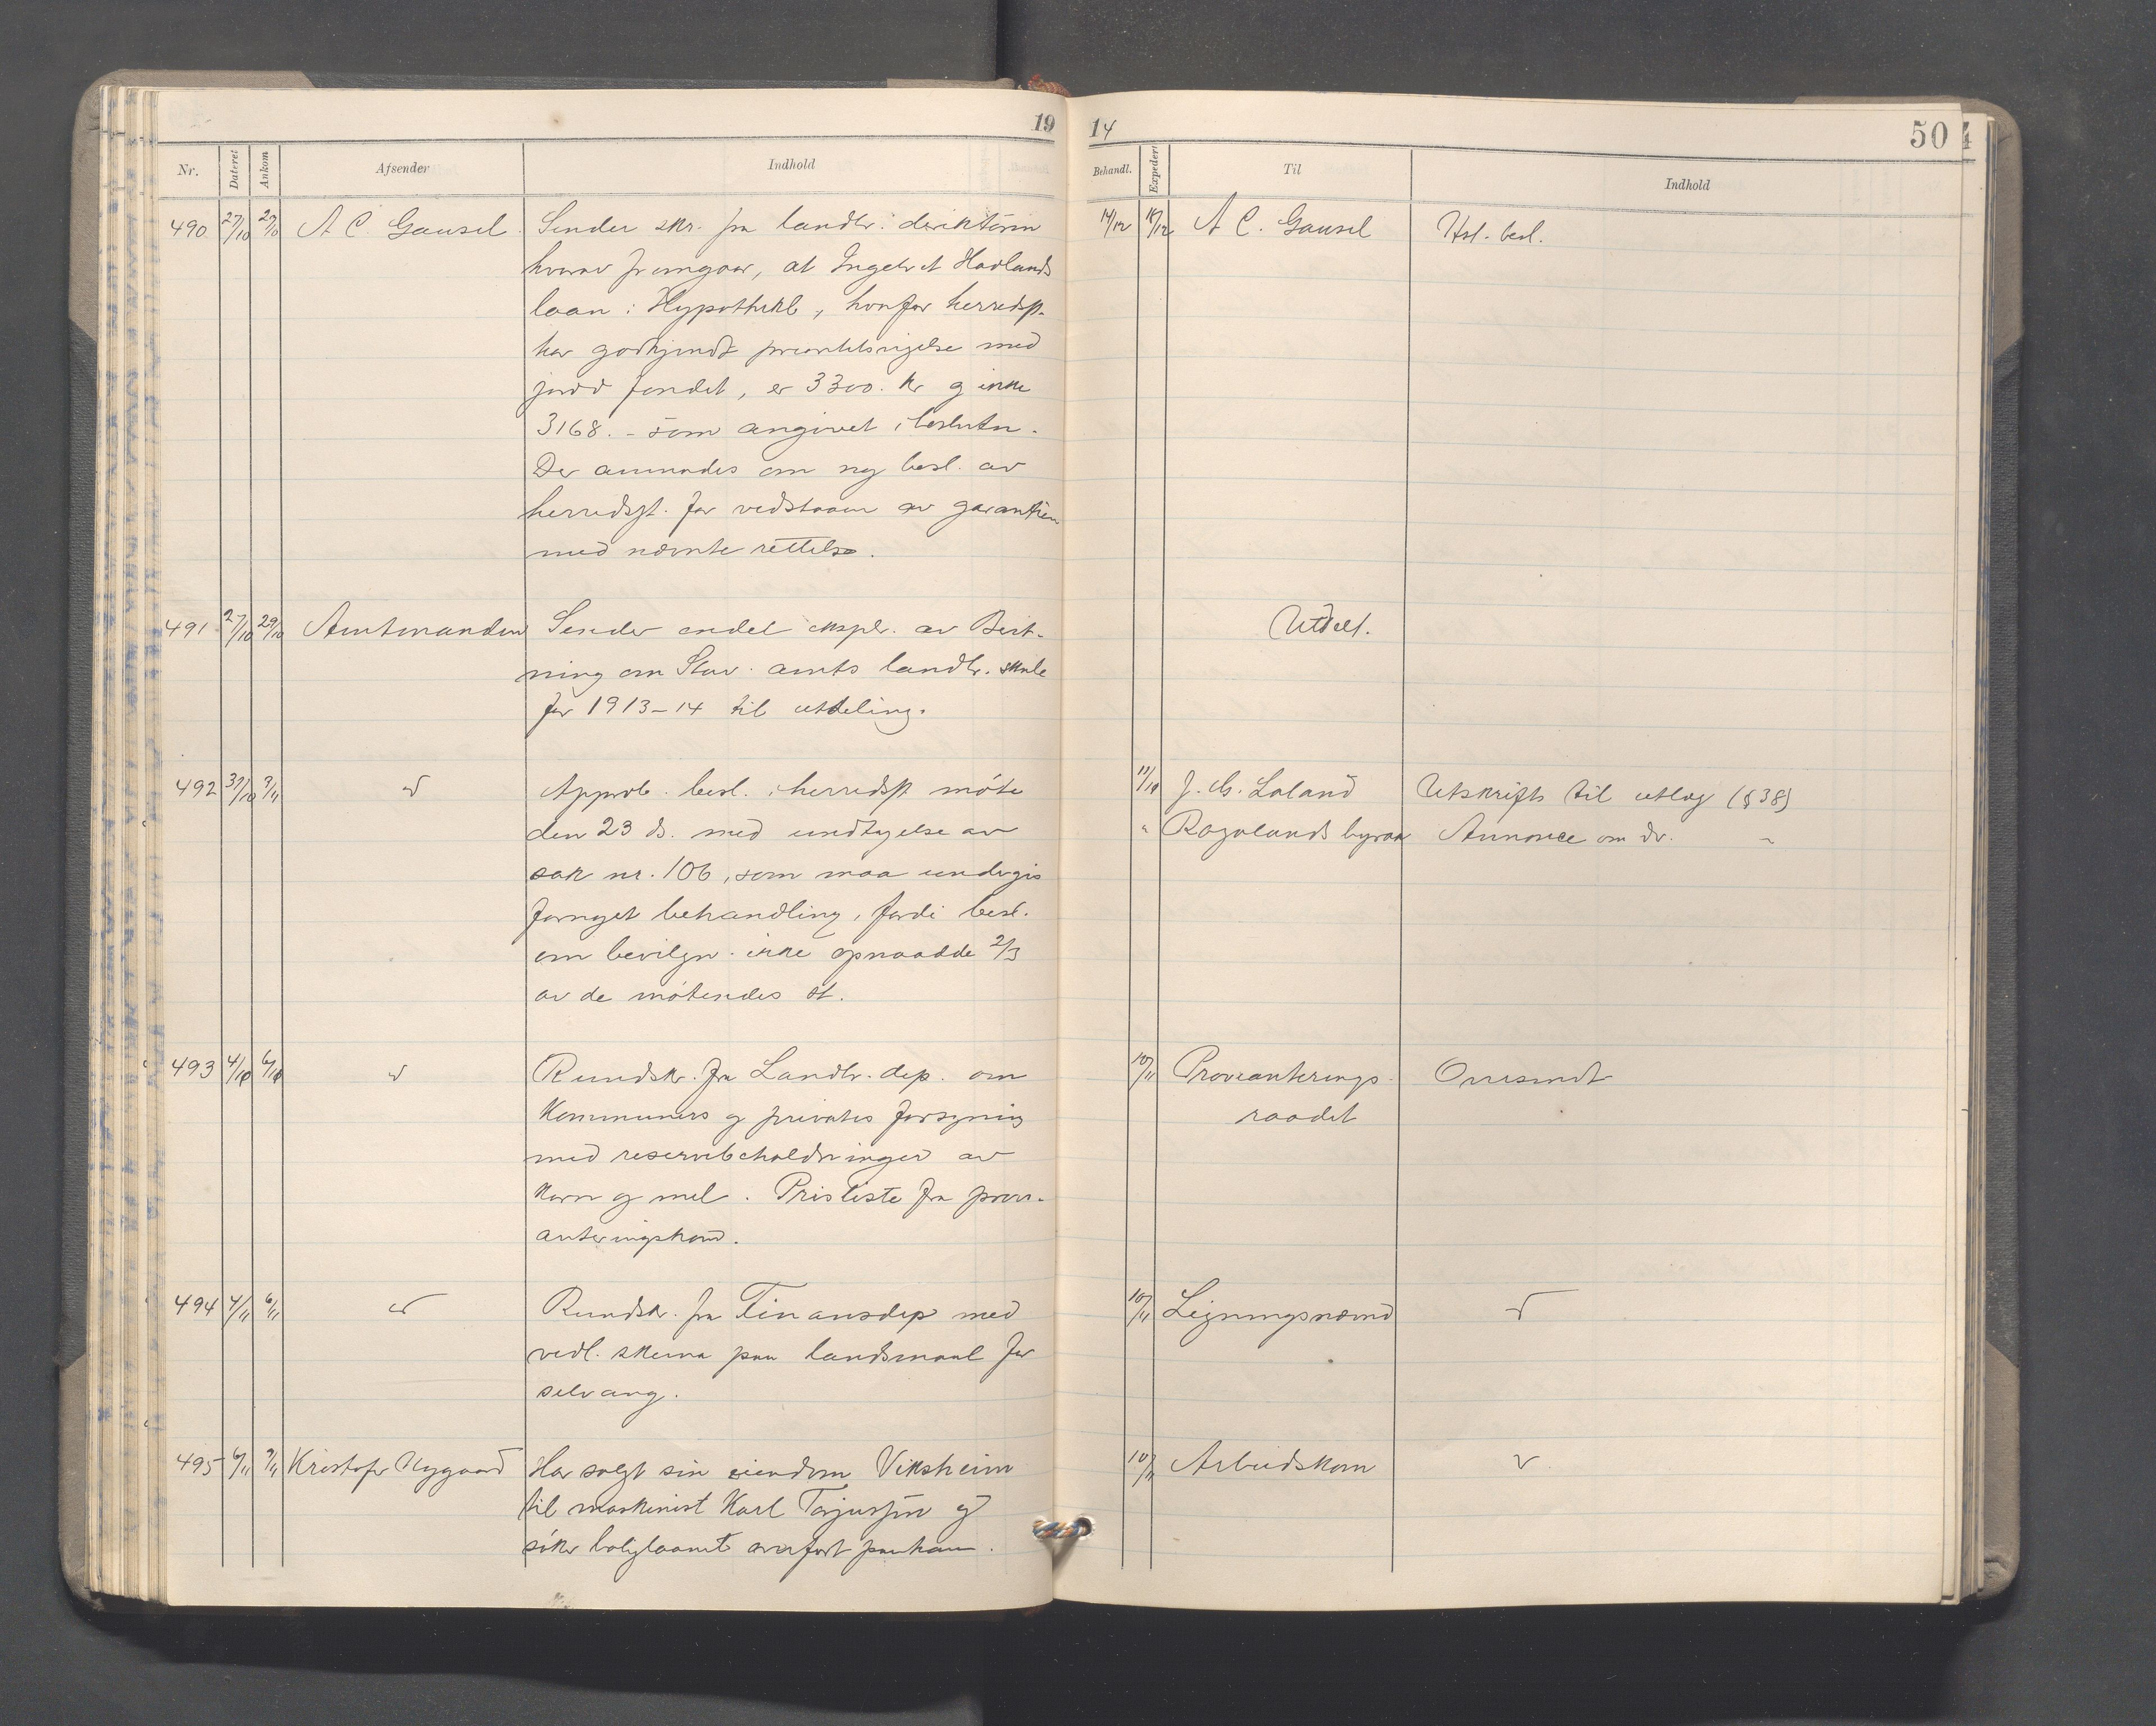 19
14
50
Nr.
Dateret
Ankom
Afsender
Indhold
Behandl.
Expedert
Til
Indhold
490 27/10 29/10 A C. Gausel. Sender skr. fra landbr. direktøren
hvorav fremgaar, at Ingebret Hadlands
laan i Hypothekb, hvorfor herredsst.
har godkjendt prioritetsvigelse med
jordd fondet, er 3300. kr og ikke
3168. - som angivet i beslutn.
Der anmodes om ny besl. av
herredsst. for vedstaaen av garantien
med nævnte rettelse.
14/12 16/12 A C. Gausel Hst. besl.
491 27/10 29/10 Amtmanden Sender endel expl. av Beret-
ning om Stav. amts landbr. skule
for 1913-14 til utdeling.
Utdelt.
492 31/10 3/11 " Approb. besl. i herredsst. møte
den 23 ds. med undtagelse av
sak nr. 106, som maa undergis
fornyet behandling, fordi besl.
om bevilgn. ikke opnaadde 2/3
av de møtendes st.
J. Laland Utskrift til utlæg (§ 38)
" Rogalands byraa Annonce om do. "
493 4/10 6/10 " Rundskr. fra Landbr. dep. om
Kommuners og privates forsyning
med reservebeholdninger av
korn og mel. Prisliste fra provi-
anteringskom.
10/11 Provianterings-
raadet
Oversendt
494 4/11 6/11 " Rundskr. fra Finansdep med
vedl. skema paa landsmaal for
selvang.
10/11 Ligningsnævnd "
495 6/11 7/11 Kristofer Nygaard Har solgt sin eiendom Viksheim
til maskinist Karl Torjussen og
søker boliglaanet overført paa ham.
10/11 Arbeidskom "